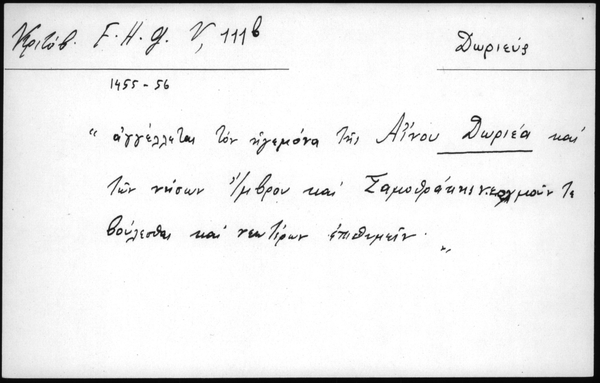 Κριτόβ. F.H.G. V, 111b
Δωριεύς
1455-56
“ ἀγγέλλεται τὸν ἡγεμόνα τῆς Αἴνου Δωριέα καὶ
τῶν νήσων Ἴμβρου καὶ Σαμοθράκης νεωσμοῦν τε
βούλεσθαι καὶ νεωτέρων ἐπιθυμεῖν. ”